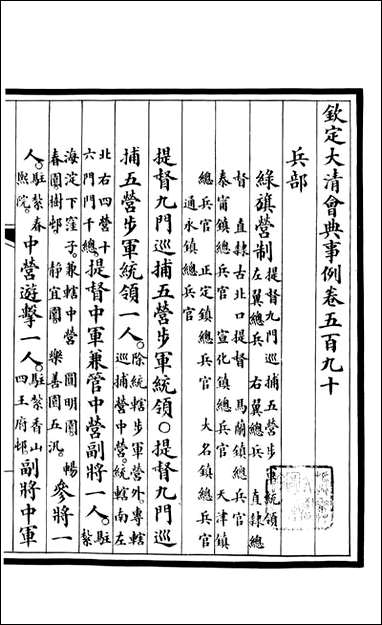 欽定大清會典事例卷五百九十
兵部
綠旗營制
提督九門巡捕五營步軍統領
左翼總兵 右翼總兵 直隸總
督 直隸古北口提督 馬蘭鎮總兵官
泰寧鎮總兵官 宣化鎮總兵官 天津鎮
總兵官 正定鎮總兵官 大名鎮總兵官
通永鎮總兵官
提督九門巡捕五營步軍統領○提督九門巡
捕五營步軍統領一人。
除統轄步軍營外。專轄
巡捕營中營。統轄南左
北右四營。十
六門門千總。
提督中軍兼管中營副將一人。
駐紮
海淀下窪子。兼轄中營 圓明園 暢
春園樹邨 靜宜園 樂善園五汛。
參將一
人。
駐紮春
熙院。
中營遊擊一人。
駐紮香山
四王府邨。
副將中軍